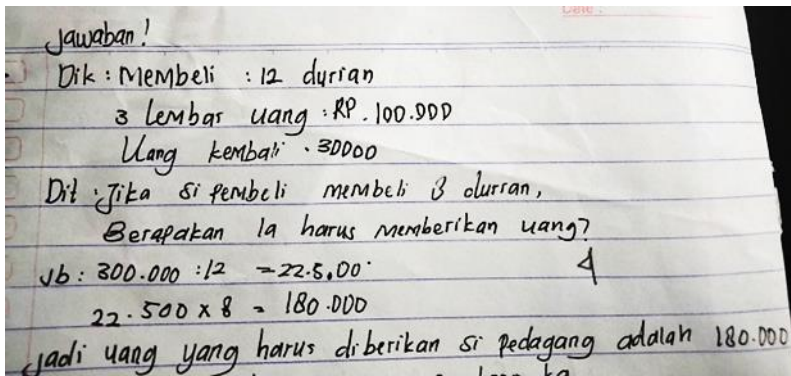 Jawaban!
Dik : Membeli : 12 durian
3 lembar uang : RP. 100.000
Uang kembali . 30000
Dit : Jika si pembeli membeli 8 durian,
Berapakan Ia harus memberikan uang?
Jb : 300.000 : 12 = 22.5.00
4
22.500 x 8 = 180.000
Jadi uang yang harus diberikan si pedagang adalah 180.000